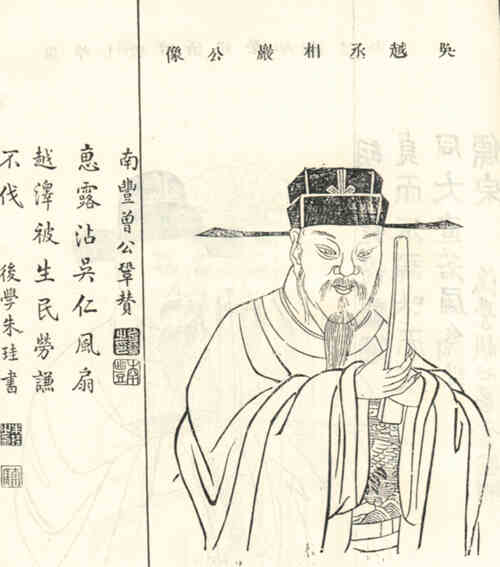 吳越丞相嚴公像
南豐曾公鞏贊
惠露沾吳仁風扇
越澤被生民勞謙
不伐 後學朱珪書